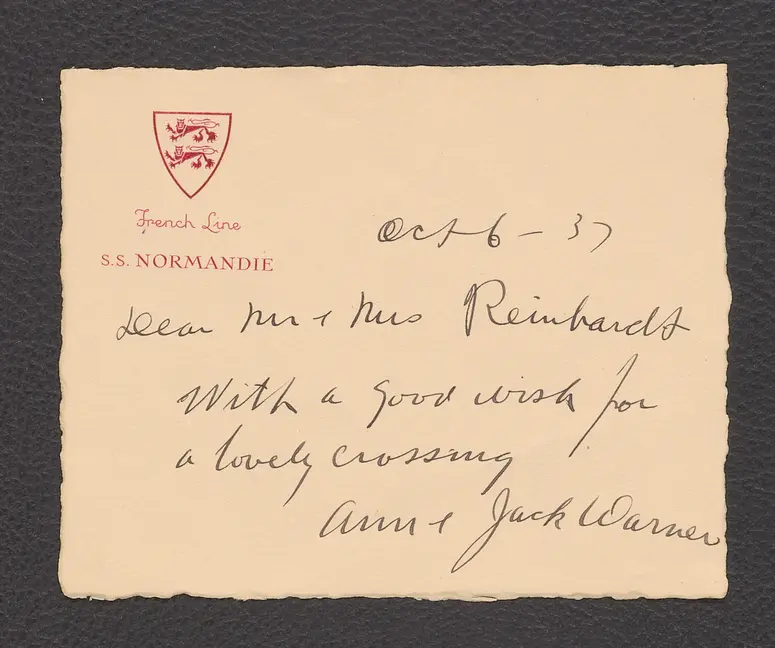 French Line
S.S. NORMANDIE
Oct 6 - 37
Dear Mr & Mrs Reinhardt
With a good wish for
a lovely crossing
Ann & Jack Warner